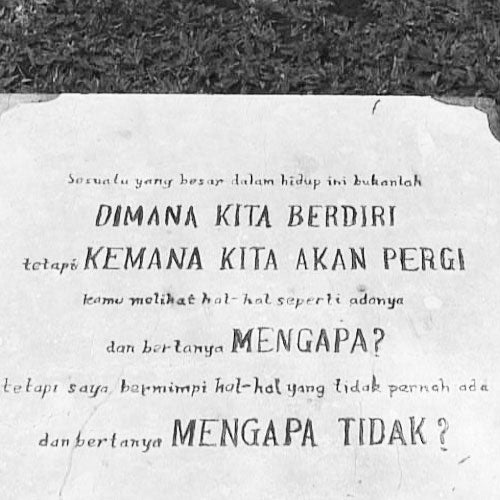 Sesuatu yang besar dalam hidup ini bukanlah
DIMANA KITA BERDIRI
tetapi KEMANA KITA AKAN PERGI
kamu melihat hal-hal seperti adanya
dan bertanya MENGAPA?
tetapi saya, bermimpi hal-hal yang tidak pernah ada
dan bertanya MENGAPA TIDAK?